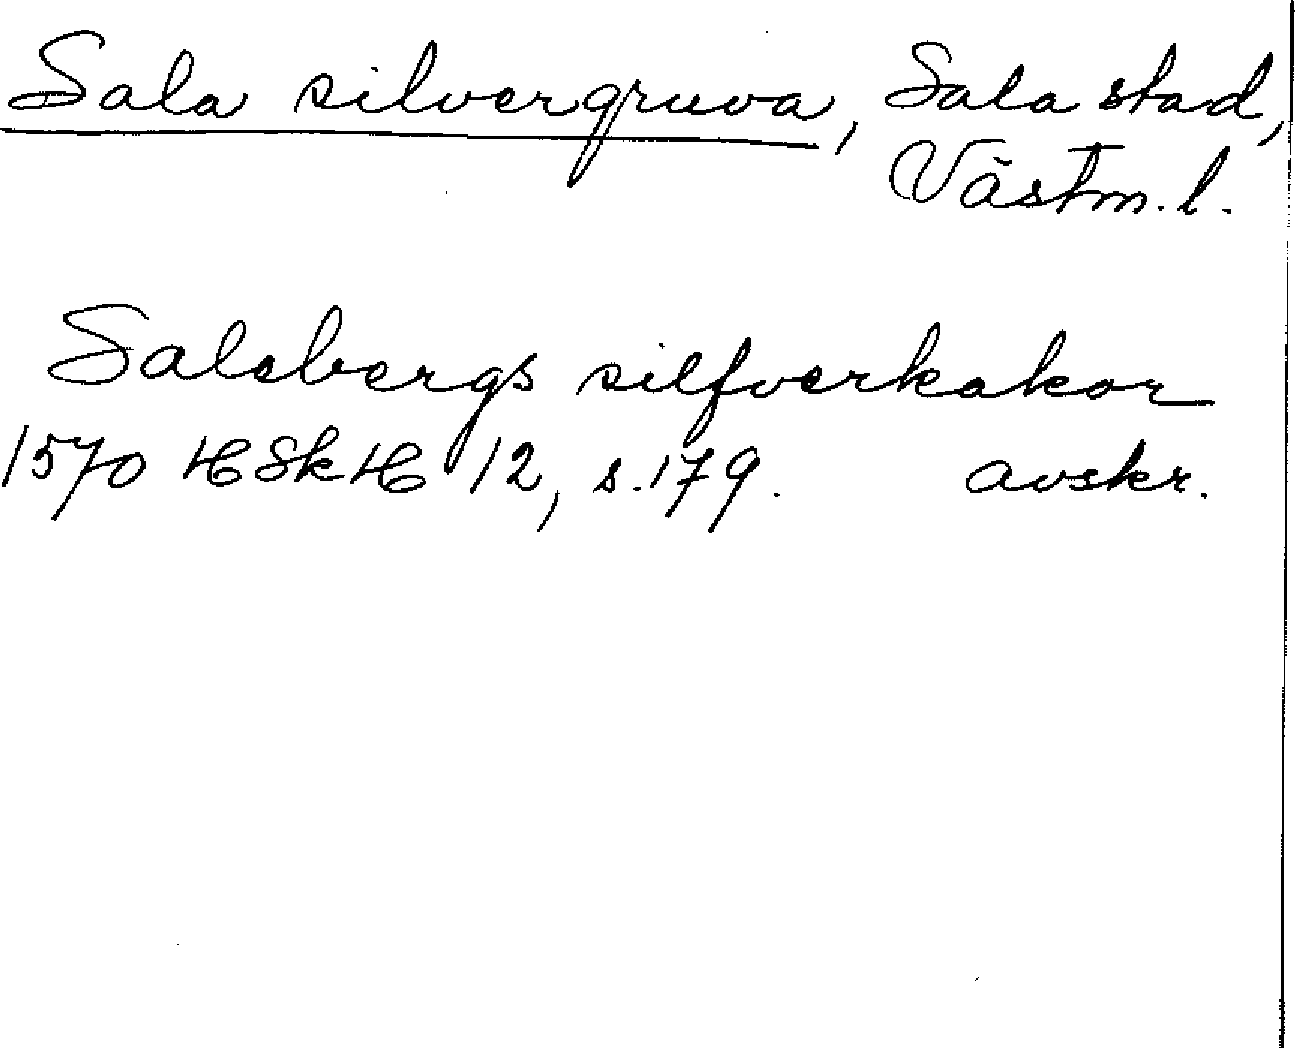 Sala silvergruva, Sala stad,
Västm. l.
Salebergs silfverkakor
1570 HSkH 12, s. 179. avskr.